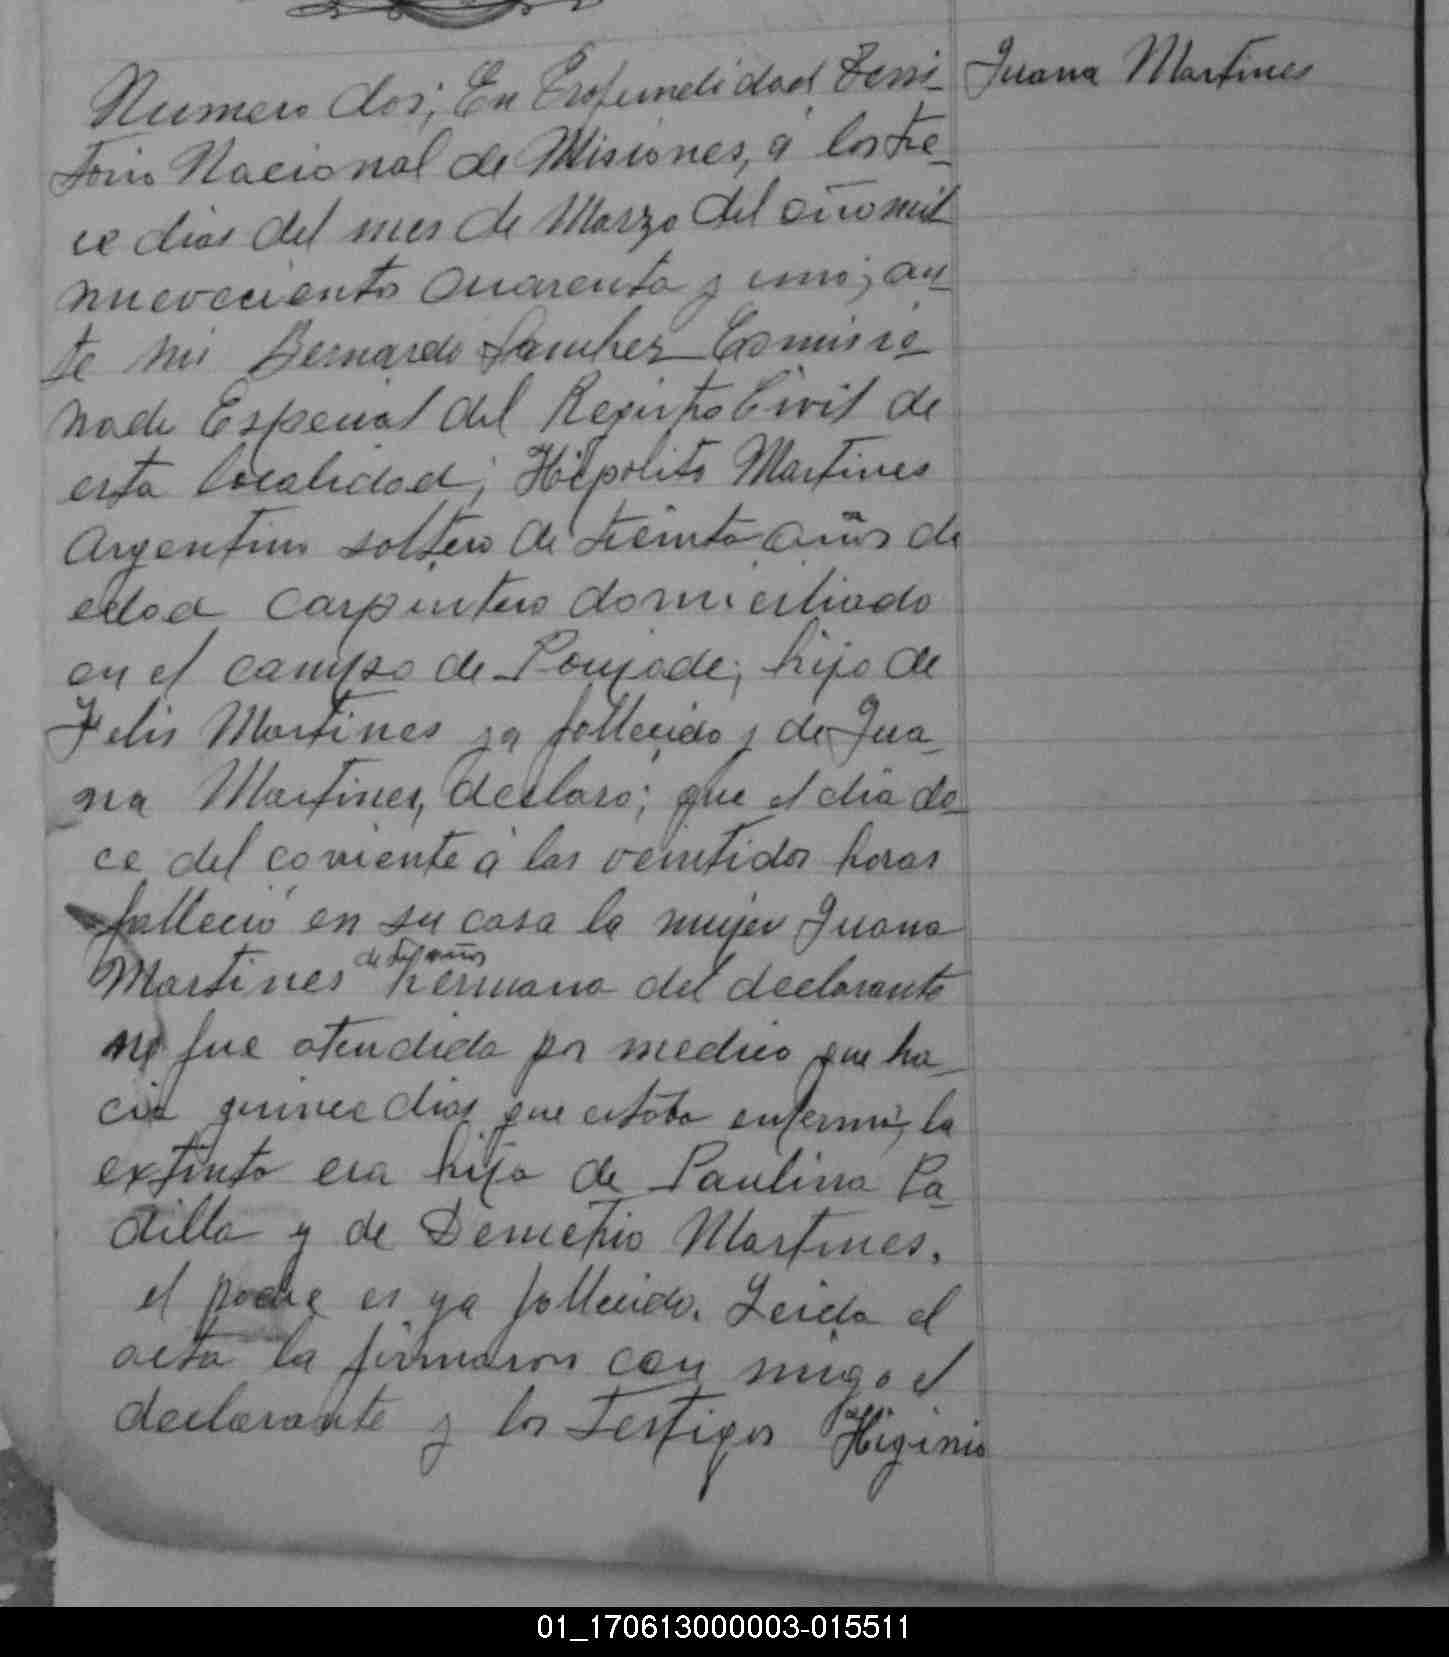 Juana Martines
Numero dos; En Profundidad Terri-
torio Nacional de Misiones, á los tre-
ce dias del mes de Marzo del año mil
nuevecientos cuarenta y uno; an-
te mi Bernardo Sanchez Comisio-
nado Especial del Registro Civil de
esta localidad; Hipolito Martines
Argentino soltero de treinta años de
edad carpintero domiciliado
en el campo de Poujade; hijo de
Felis Martines ya fallecido y de Jua-
na Martines, declaro; que el dia do-
ce del coriente á las veintidos horas
fallecio en su casa la mujer Juana
de años
Martines hermana del declarante
no fue atendida por medico que ha-
cia quince dias que estaba enferma, la
extinta era hija de Paulina Pa-
dilla y de Demetrio Martines.
el padre es ya fallecido. Leida el
acta la firmaron con migo el
declarante y los testigos Higinio
01_170613000003-015511